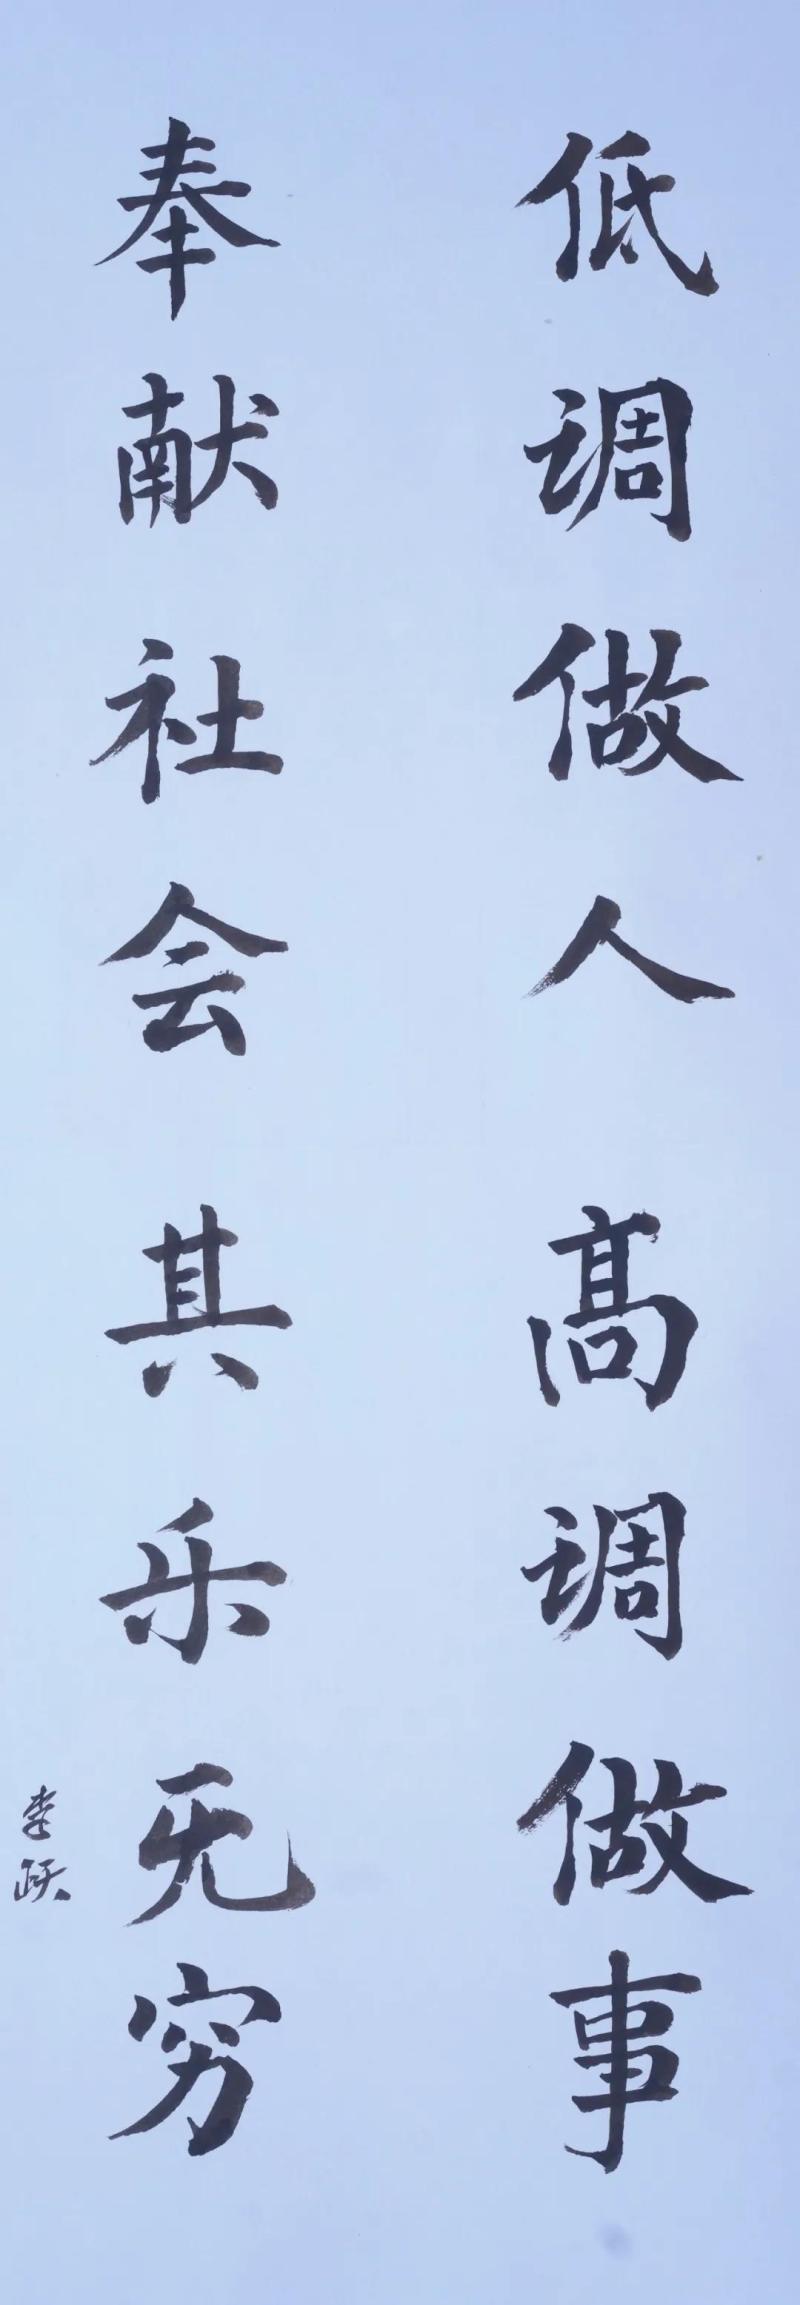 低调做人高调做事
奉献社会其乐无穷
李跃